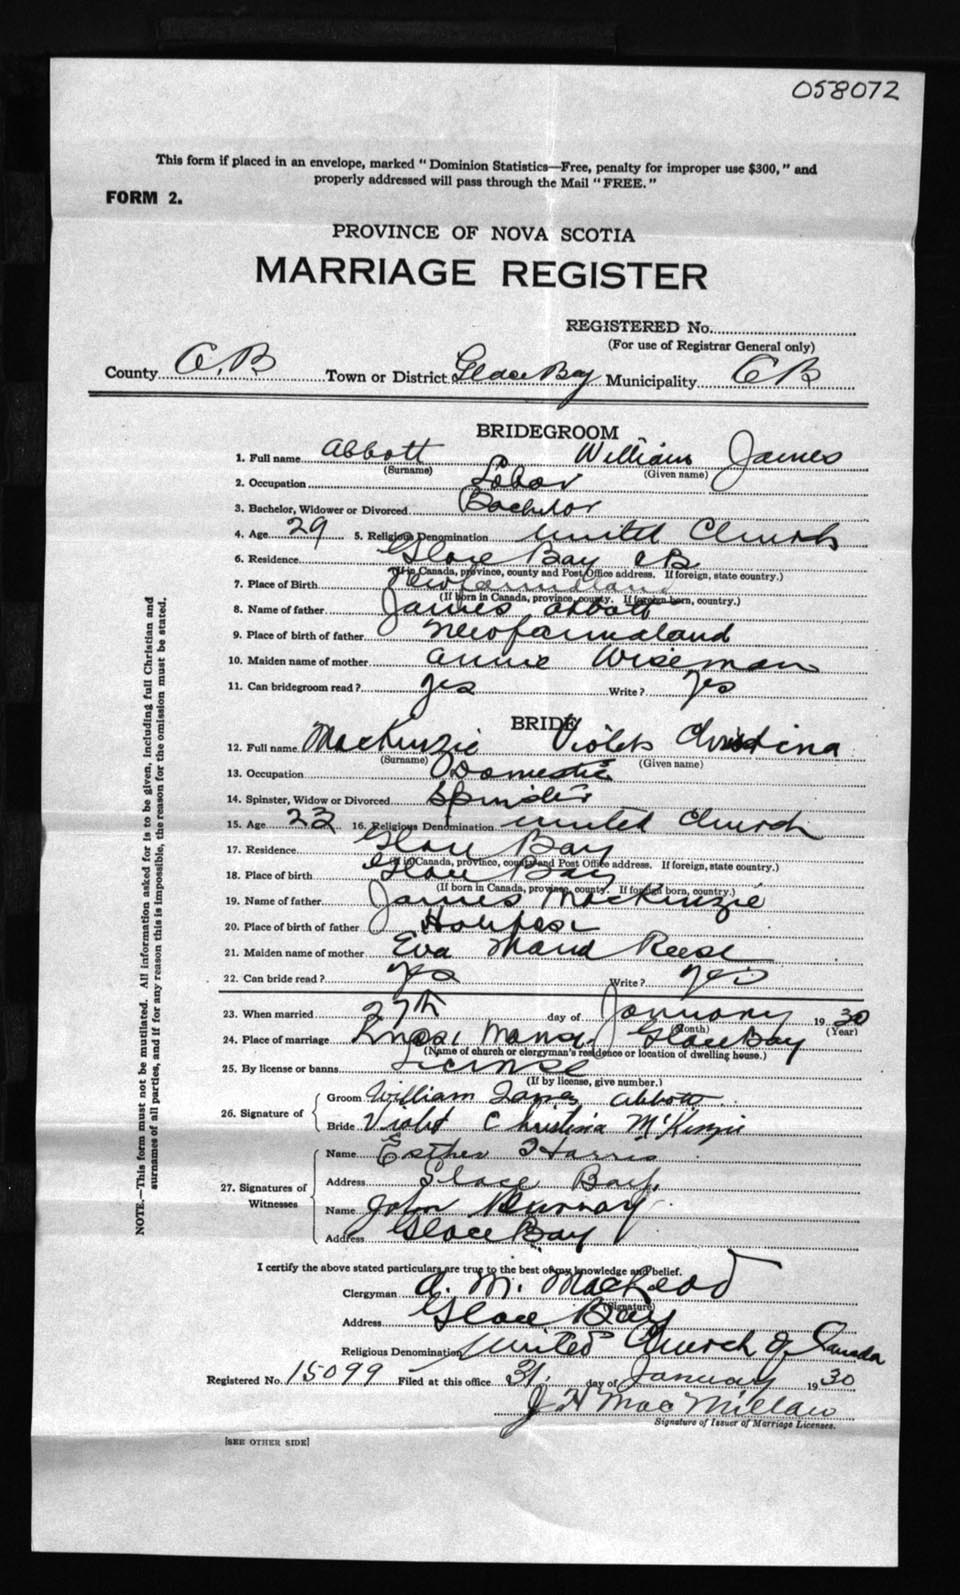 058072
This form if placed in an envelope, marked "Dominion Statistics—Free, penalty for improper use $300," and
properly addressed will pass through the Mail "FREE."
FORM 2.
PROVINCE OF NOVA SCOTIA
MARRIAGE REGISTER
REGISTERED No.
(For use of Registrar General only)
County C.B Town or District Glace Bay Municipality CB
BRIDEGROOM
1. Full name Abbott William James
(Surname) (Given name)
2. Occupation Labor
3. Bachelor, Widower or Divorced Bachelor
4. Age 29 5. Religious Denomination United Church
6. Residence Glace Bay CB
(If in Canada, province, county and Post Office address. If foreign, state country.)
7. Place of Birth
(If born in Canada, province, county. If foreign born, country.)
8. Name of father James Abbott
9. Place of birth of father
10. Maiden name of mother Annie Wiseman
11. Can bridegroom read? yes Write? yes
BRIDE
12. Full name MacKenzie Violet Christina
(Surname) (Given name)
13. Occupation Domestic
14. Spinster, Widow or Divorced Spinster
15. Age 23 16. Religious Denomination United Church
17. Residence Glace Bay
(If in Canada, province, county and Post Office address. If foreign, state country.)
18. Place of birth Glace Bay
(If born in Canada, province, county. If foreign born, country.)
19. Name of father James MacKinzie
20. Place of birth of father
21. Maiden name of mother Eva Maud Reese
22. Can bride read? yes Write? yes
23. When married 27th day of January 1930
(Month) (Year)
24. Place of marriage Glace Bay
(Name of church or clergyman's residence or location of dwelling house.)
25. By license or banns License
(If by license, give number.)
26. Signature of
Groom William James Abbott
Bride Violet Christina McKinzie
27. Signatures of Witnesses
Name Esther Harris
Address Glace Bay.
Name John Murray
Address Glace Bay
I certify the above stated particulars are true to the best of my knowledge and belief.
Clergyman A. M. MacLeod
(Signature)
Address Glace Bay
Religious Denomination United Church of Canada
Registered No. 15099 Filed at this office 31, day of January 1930
J H MacMillan
Signature of Issuer of Marriage Licenses.
[SEE OTHER SIDE]
NOTE.—This form must not be mutilated. All information asked for is to be given, including full Christian and
surnames of all parties, and if for any reason this is impossible, the reason for the omission must be stated.